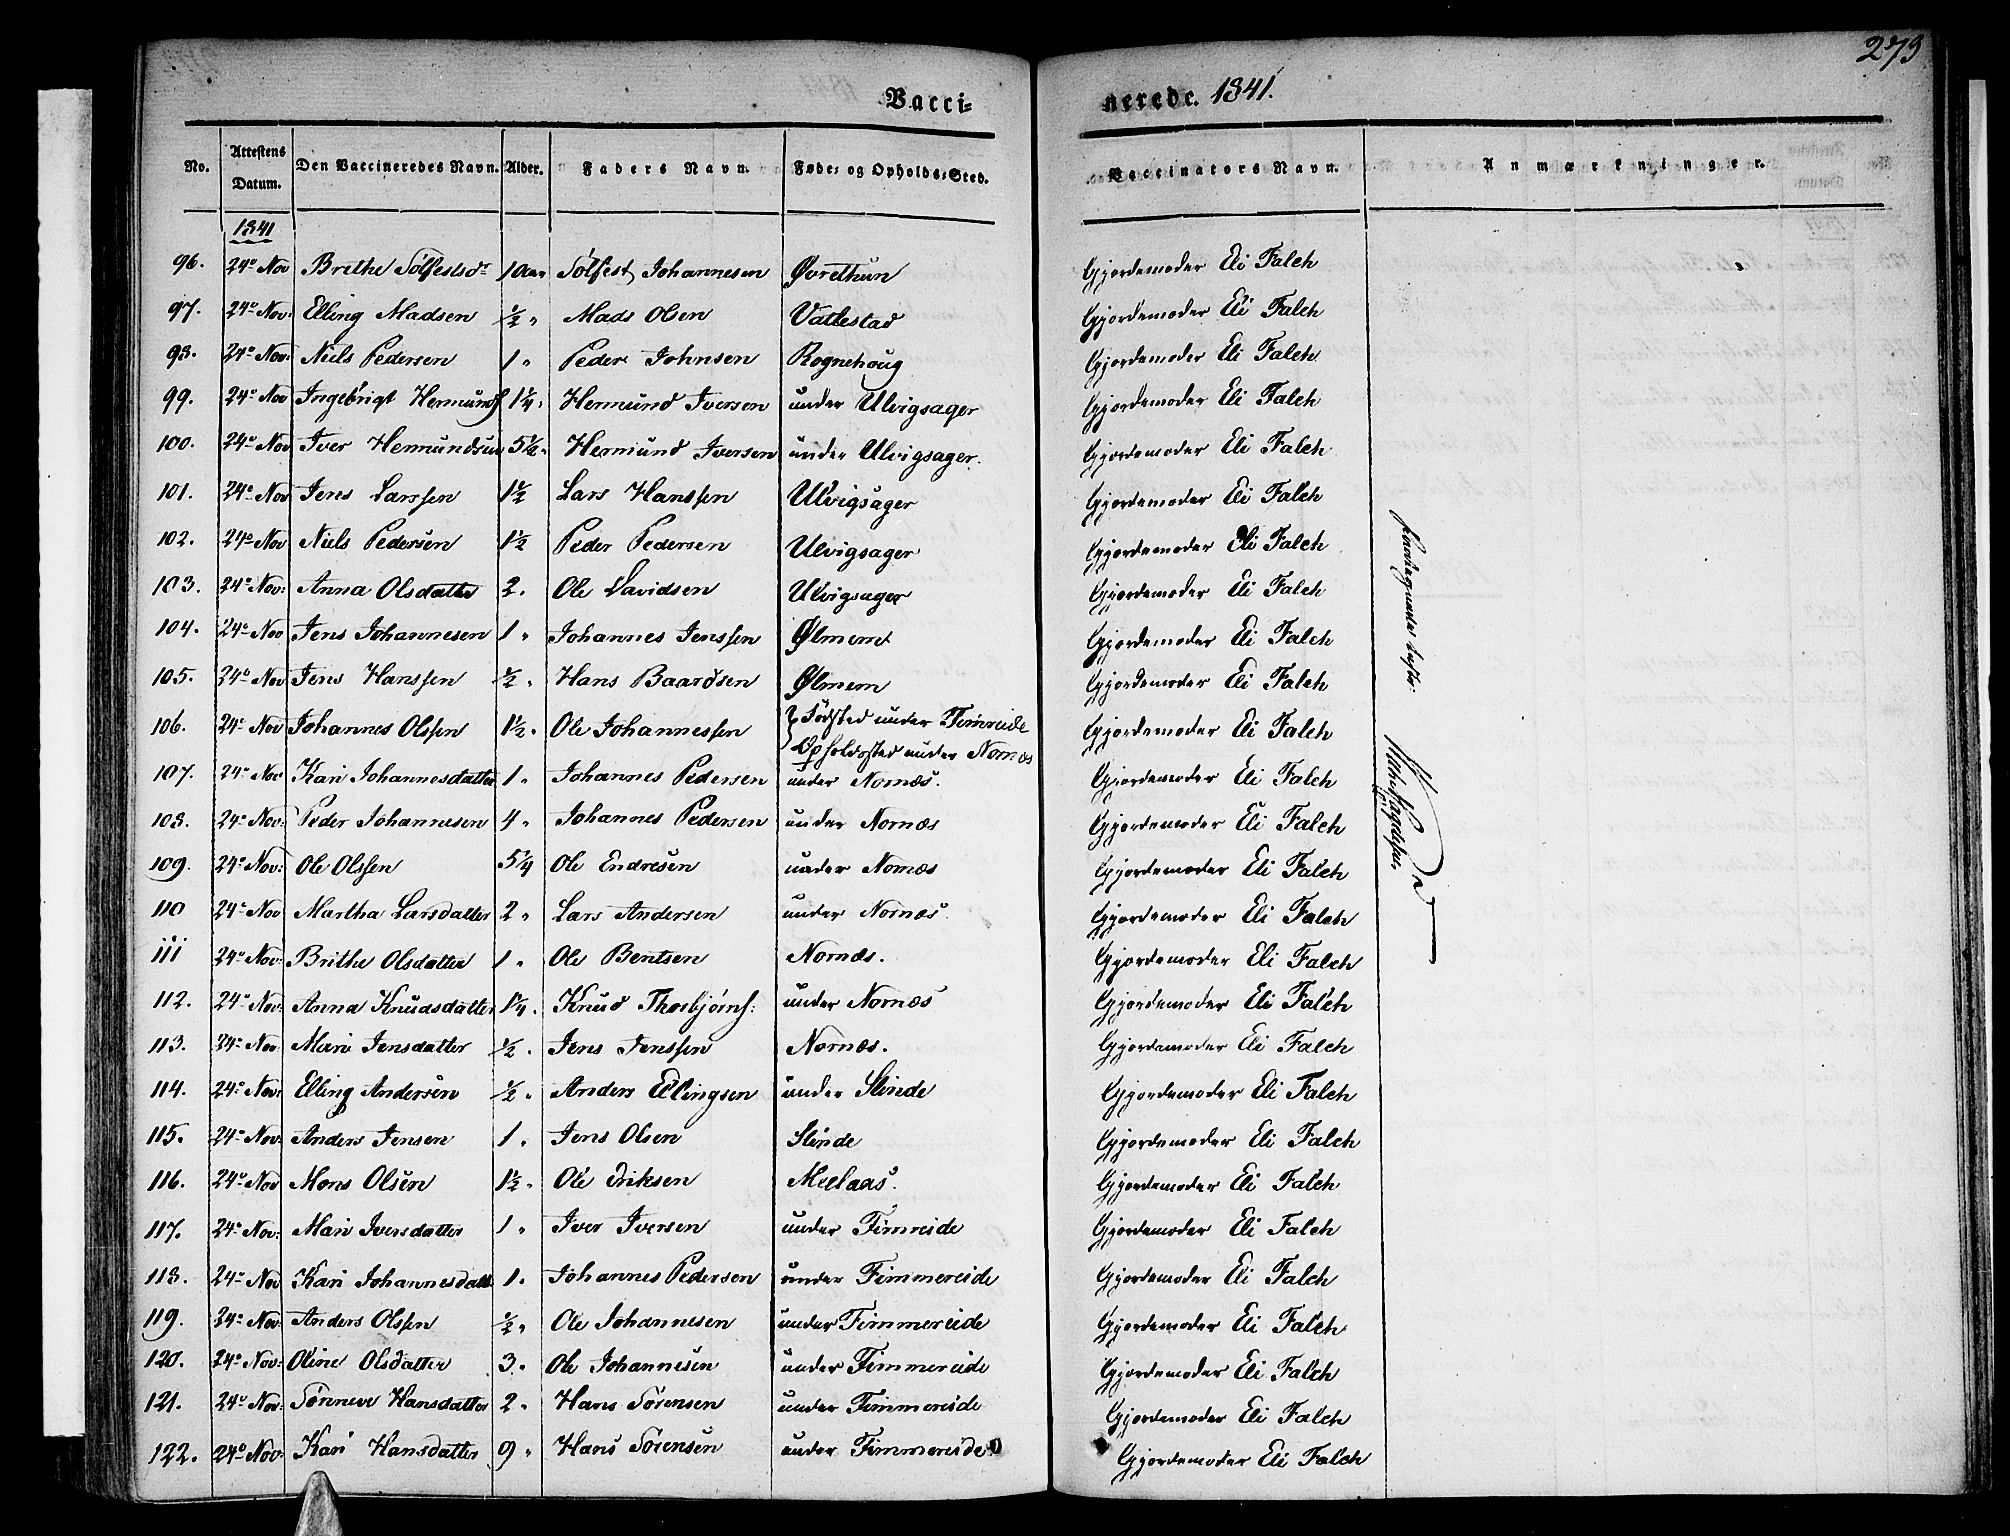 273
Vacci=
nerede. 1841.
No. Attestens Datum. Den Vaccineredes Navn. Alder. Faders Navn. Føde= og Opholds=Sted. Vaccinators Navn. Anmærkninger.
1841
96. 24de Nov Brithe Sølfestsdr 10 Aar Sølfest Johannesen Øvrethun Gjordemoder Eli Falch
97. 24de Nov: Elling Madsen ½ " Mads Olsen Vallestad Gjordemoder Eli Falch
98. 24de Nov: Niels Pedersen 1 " Peder Johnsen Rognehoug Gjordemoder Eli Falch
99. 24de Nov Ingebrigt Hermunds 1¼ " Hermund Iversen under Ulvigsager Gjordemoder Eli Falch
100. 24de Nov Iver Hermundsen 5½ " Hermund Iversen under Ulvigsager. Gjordemoder Eli Falch
101. 24de Nov Jens Larssen 1½ Lars Hanssen Ulvigsager Gjordemoder Eli Falch
102. 24de Nov Niels Pedersen 1½ Peder Pedersen Ulvigsager Gjordemoder Eli Falch
103. 24de Nov: Anna Olsdatter 2. Ole Davidsen Ulvigsager Gjordemoder Eli Falch
104. 24de Nov Jens Johannesen 1 " Johannes Jenssen Ølmem Gjordemoder Eli Falch
105. 24de Nov Jens Hanssen ½ " Hans Baardsen Ølmem Gjordemoder Eli Falch
106. 24de Nov Johannes Olssen 1½. Ole Johannessen Fødsted under Fimreide Gjordemoder Eli Falch
Opholdssted under Nornæs
107. 24de Nov Kari Johannesdatter 1. Johannes Pedersen under Nornæs. Gjordemoder Eli Falch
108. 24de Nov: Peder Johannesen 4 " Johannes Pedersen under Nornæs Gjordemoder Eli Falch
109. 24de Nov: Ole Olssen 5¼ Ole Endresen under Nornæs Gjordemoder Eli Falch
110 24de Nov Martha Larsdatter 2 " Lars Andersen under Nornæs. Gjordemoder Eli Falch
111 24de Nov: Brithe Olsdatter 1 " Ole Bentsen Nornæs. Gjordemoder Eli Falch
112. 24de Nov: Anna Knudsdatter 1¼. Knud Thorbjørns: under Nornæs Gjordemoder Eli Falch
113. 24de Nov Mari Jensdatter ½. Jens Jenssen Nornæs. Gjordemoder Eli Falch
114. 24de Nov: Elling Andersen ½ " Anders Ellingsen under Slinde Gjordemoder Eli Falch
115. 24de Nov: Anders Jensen 1. Jens Olsen Slinde Gjordemoder Eli Falch
116. 24de Nov Mons Olsen 1½ " Ole Eriksen Gjordemoder Eli Falch
117. 24de Nov: Mari Iversdatter 1 " Iver Iversen under Fimreide Gjordemoder Eli Falch
118. 24de Nov Kari Johannesdatt 1. Johannes Pedersen under Fimmereide Gjordemoder Eli Falch
119. 24de Nov: Anders Olssen ½ " Ole Johannesen under Fimmereide Gjordemoder Eli Falch
120. 24de Nov: Oline Olsdatter 3. Ole Johannesen under Fimmereide Gjordemoder Eli Falch
121. 24de Nov: Sønneve Hansdatter 2 " Hans Sørensen under Fimmereide Gjordemoder Eli Falch
122. 24de Nov: Kari Hansdatter 9 " Hans Sørensen under Fimmereide Gjordemoder Eli Falch